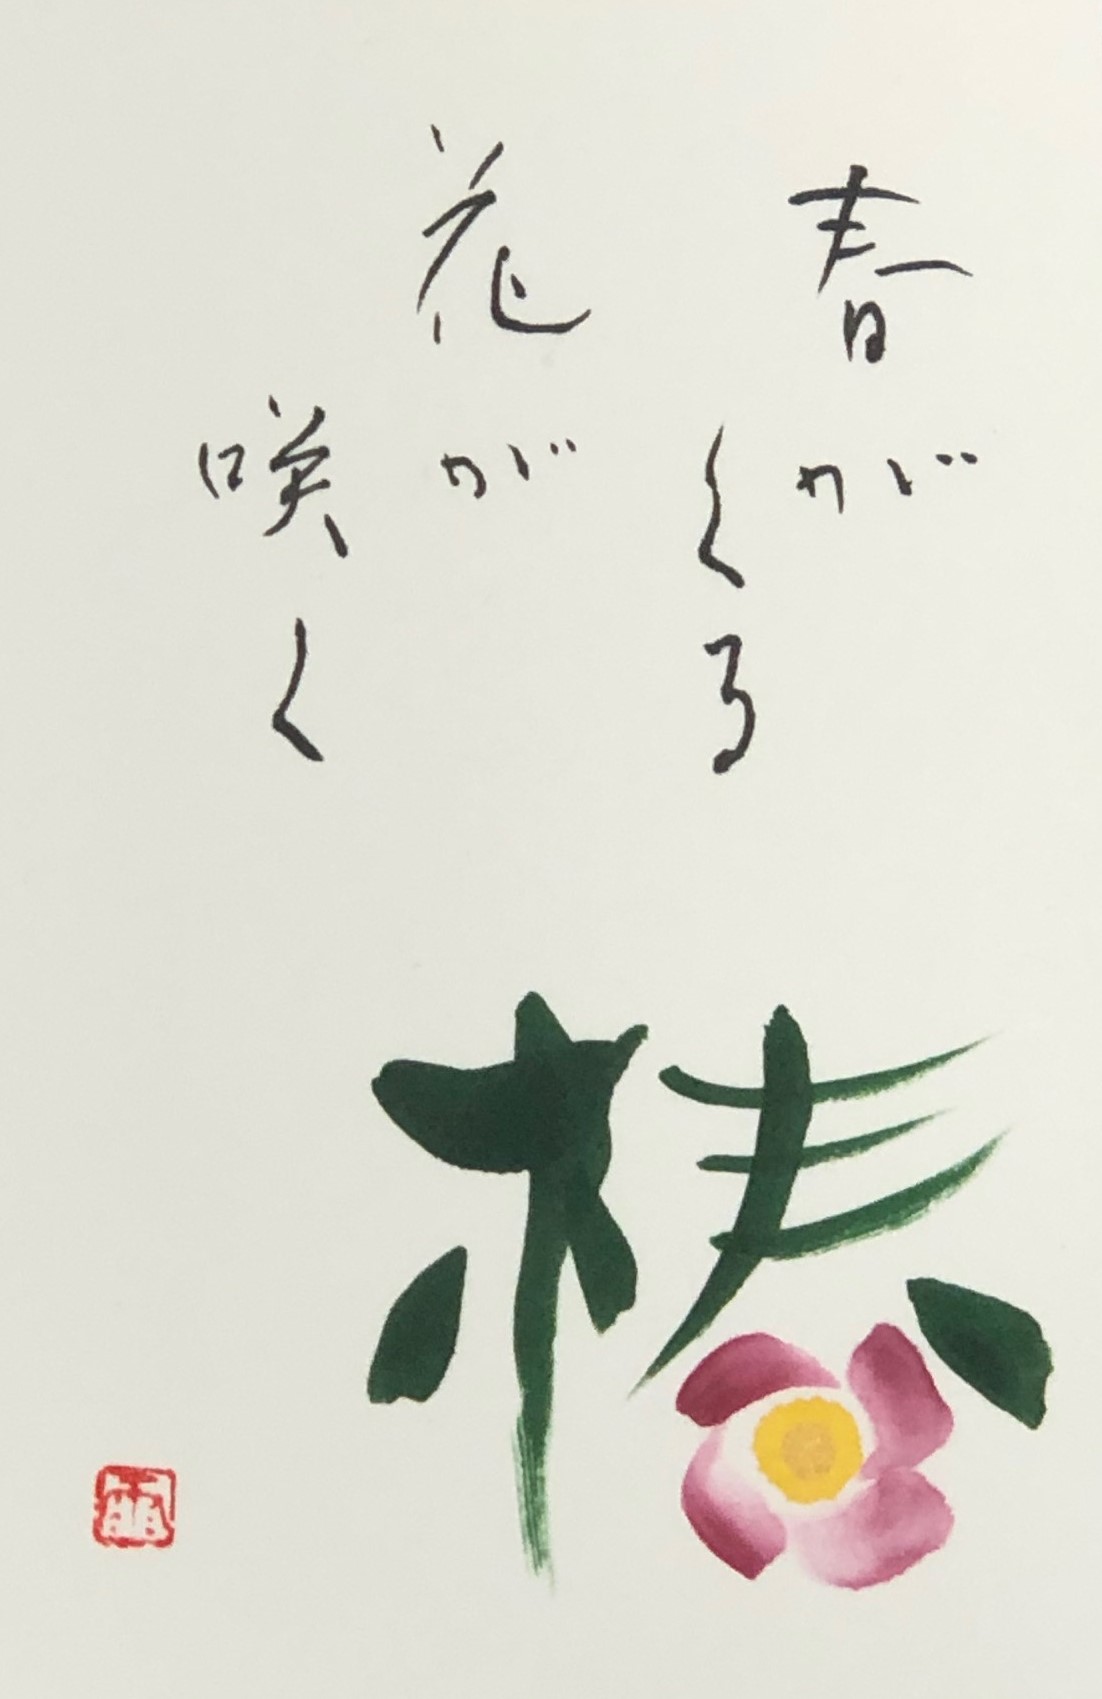 春が
くる
花が
咲く
椿